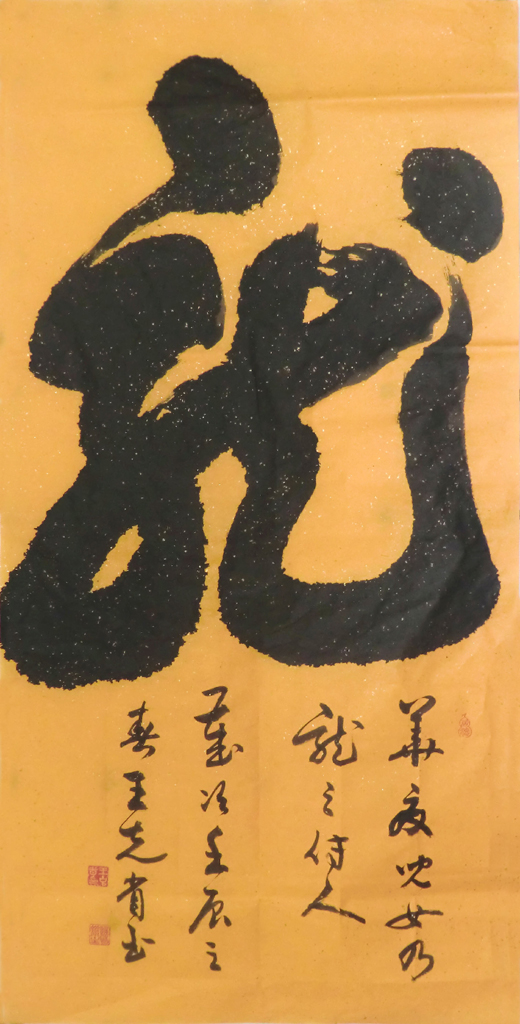 龍
華夏兒女乃
龍之傳人
歲次壬辰之
春王书